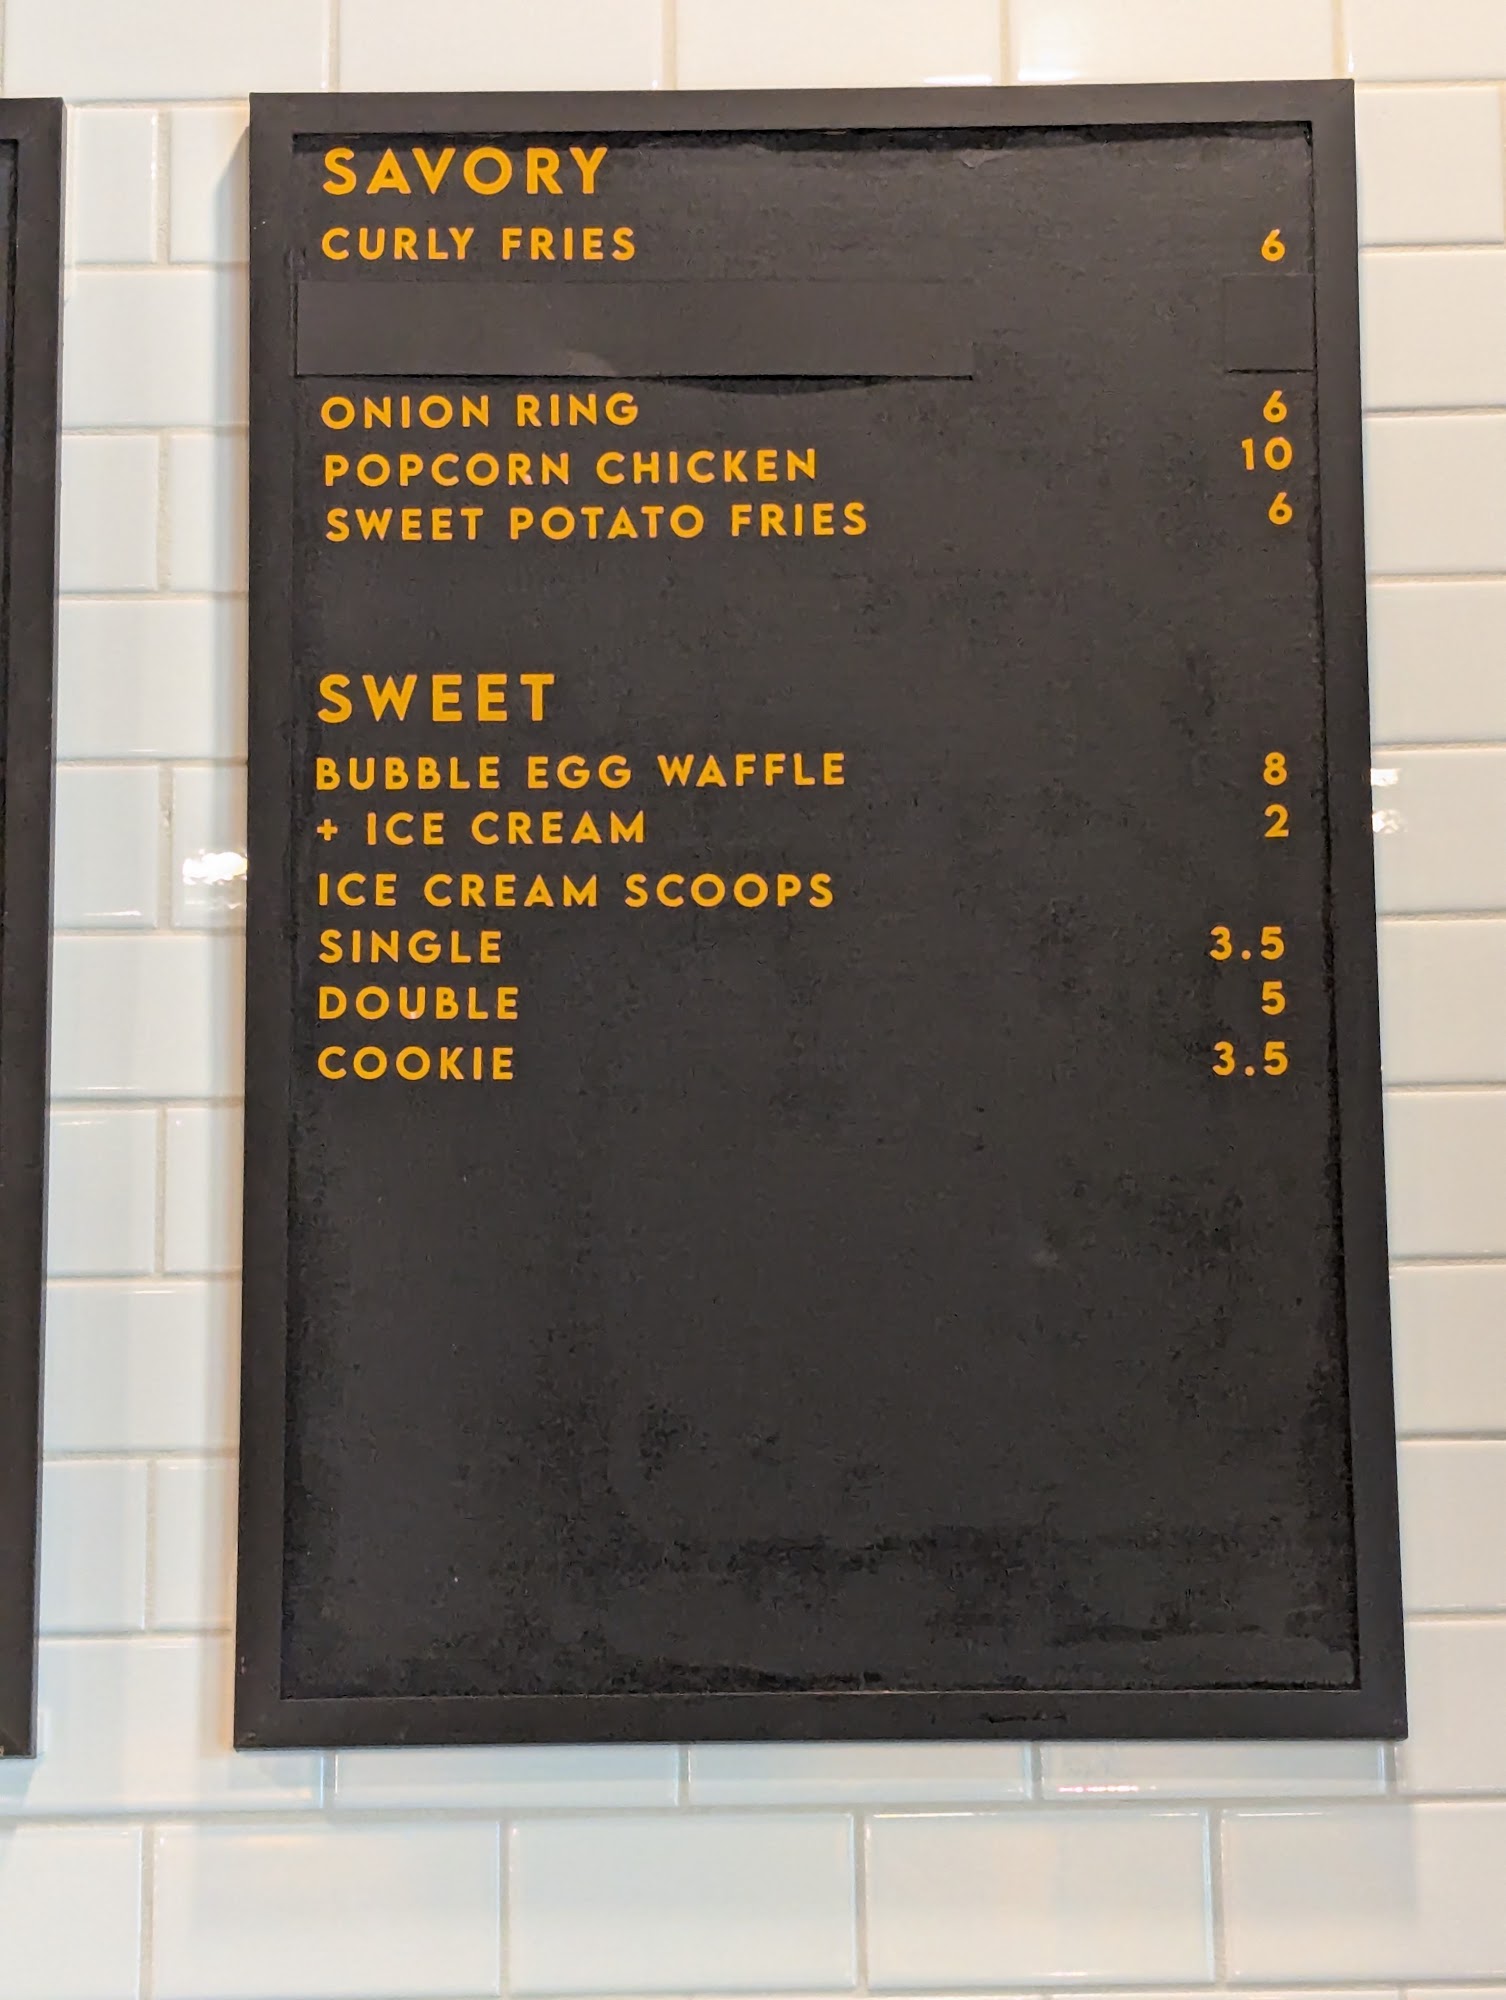 SAVORY
CURLY FRIES 6
ONION RING 6
POPCORN CHICKEN 10
SWEET POTATO FRIES 6
SWEET
BUBBLE EGG WAFFLE 8
+ ICE CREAM 2
ICE CREAM SCOOPS
SINGLE 3.5
DOUBLE 5
COOKIE 3.5